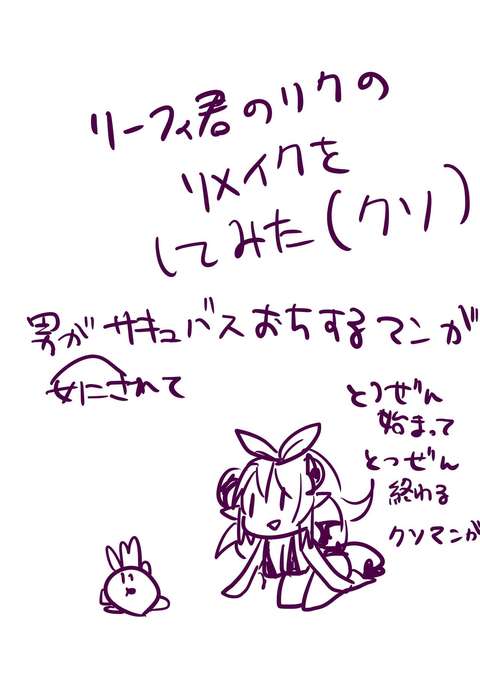 リーフィ君のリクの
リメイクを
してみた(クソ)
男がサキュバスおちするマンが
女にされて
とつぜん
始まって
とつぜん
終わる
クソマンガ